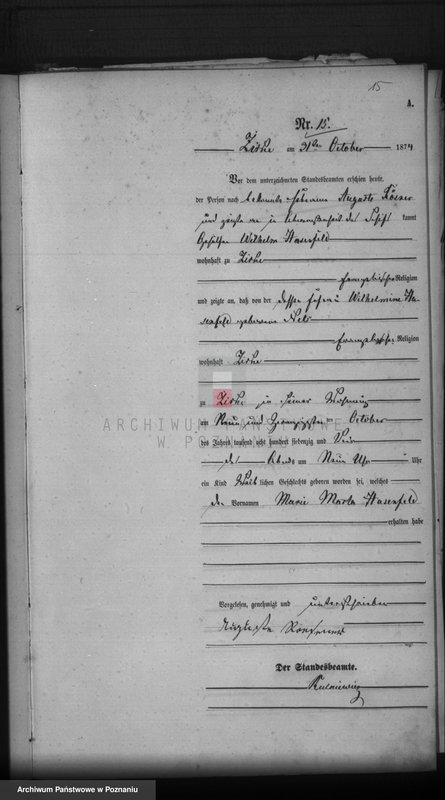 15
A.
Nr. 15.
Zirke am 31ten October 1874
Vor dem unterzeichneten Standesbeamten erschien heute,
der Person nach bekannt, Hebamme Auguste
und zeigte an in der kannt
Wilhelm Hasenfeld
wohnhaft zu Zirke
evangelischer Religion
und zeigte an, daß von der dessen Ehefrau Wilhelmine Ha-
senfeld geborene
evangelischer Religion
wohnhaft Zirke
zu Zirke in seiner Wohnung
am Neun und Zwanzigsten October
des Jahres tausend acht hundert siebenzig und Vier
des Abends um Neun Uhr Uhr
ein Kind Weiblichen Geschlechts geboren worden sei, welches
den Vornamen Marie Marta Hasenfeld
erhalten habe
Vorgelesen, genehmigt und unterschrieben
Auguste
Der Standesbeamte.
ARCHIWUM PAŃSTWOWE
W POZNANIU
Archiwum Państwowe w Poznaniu